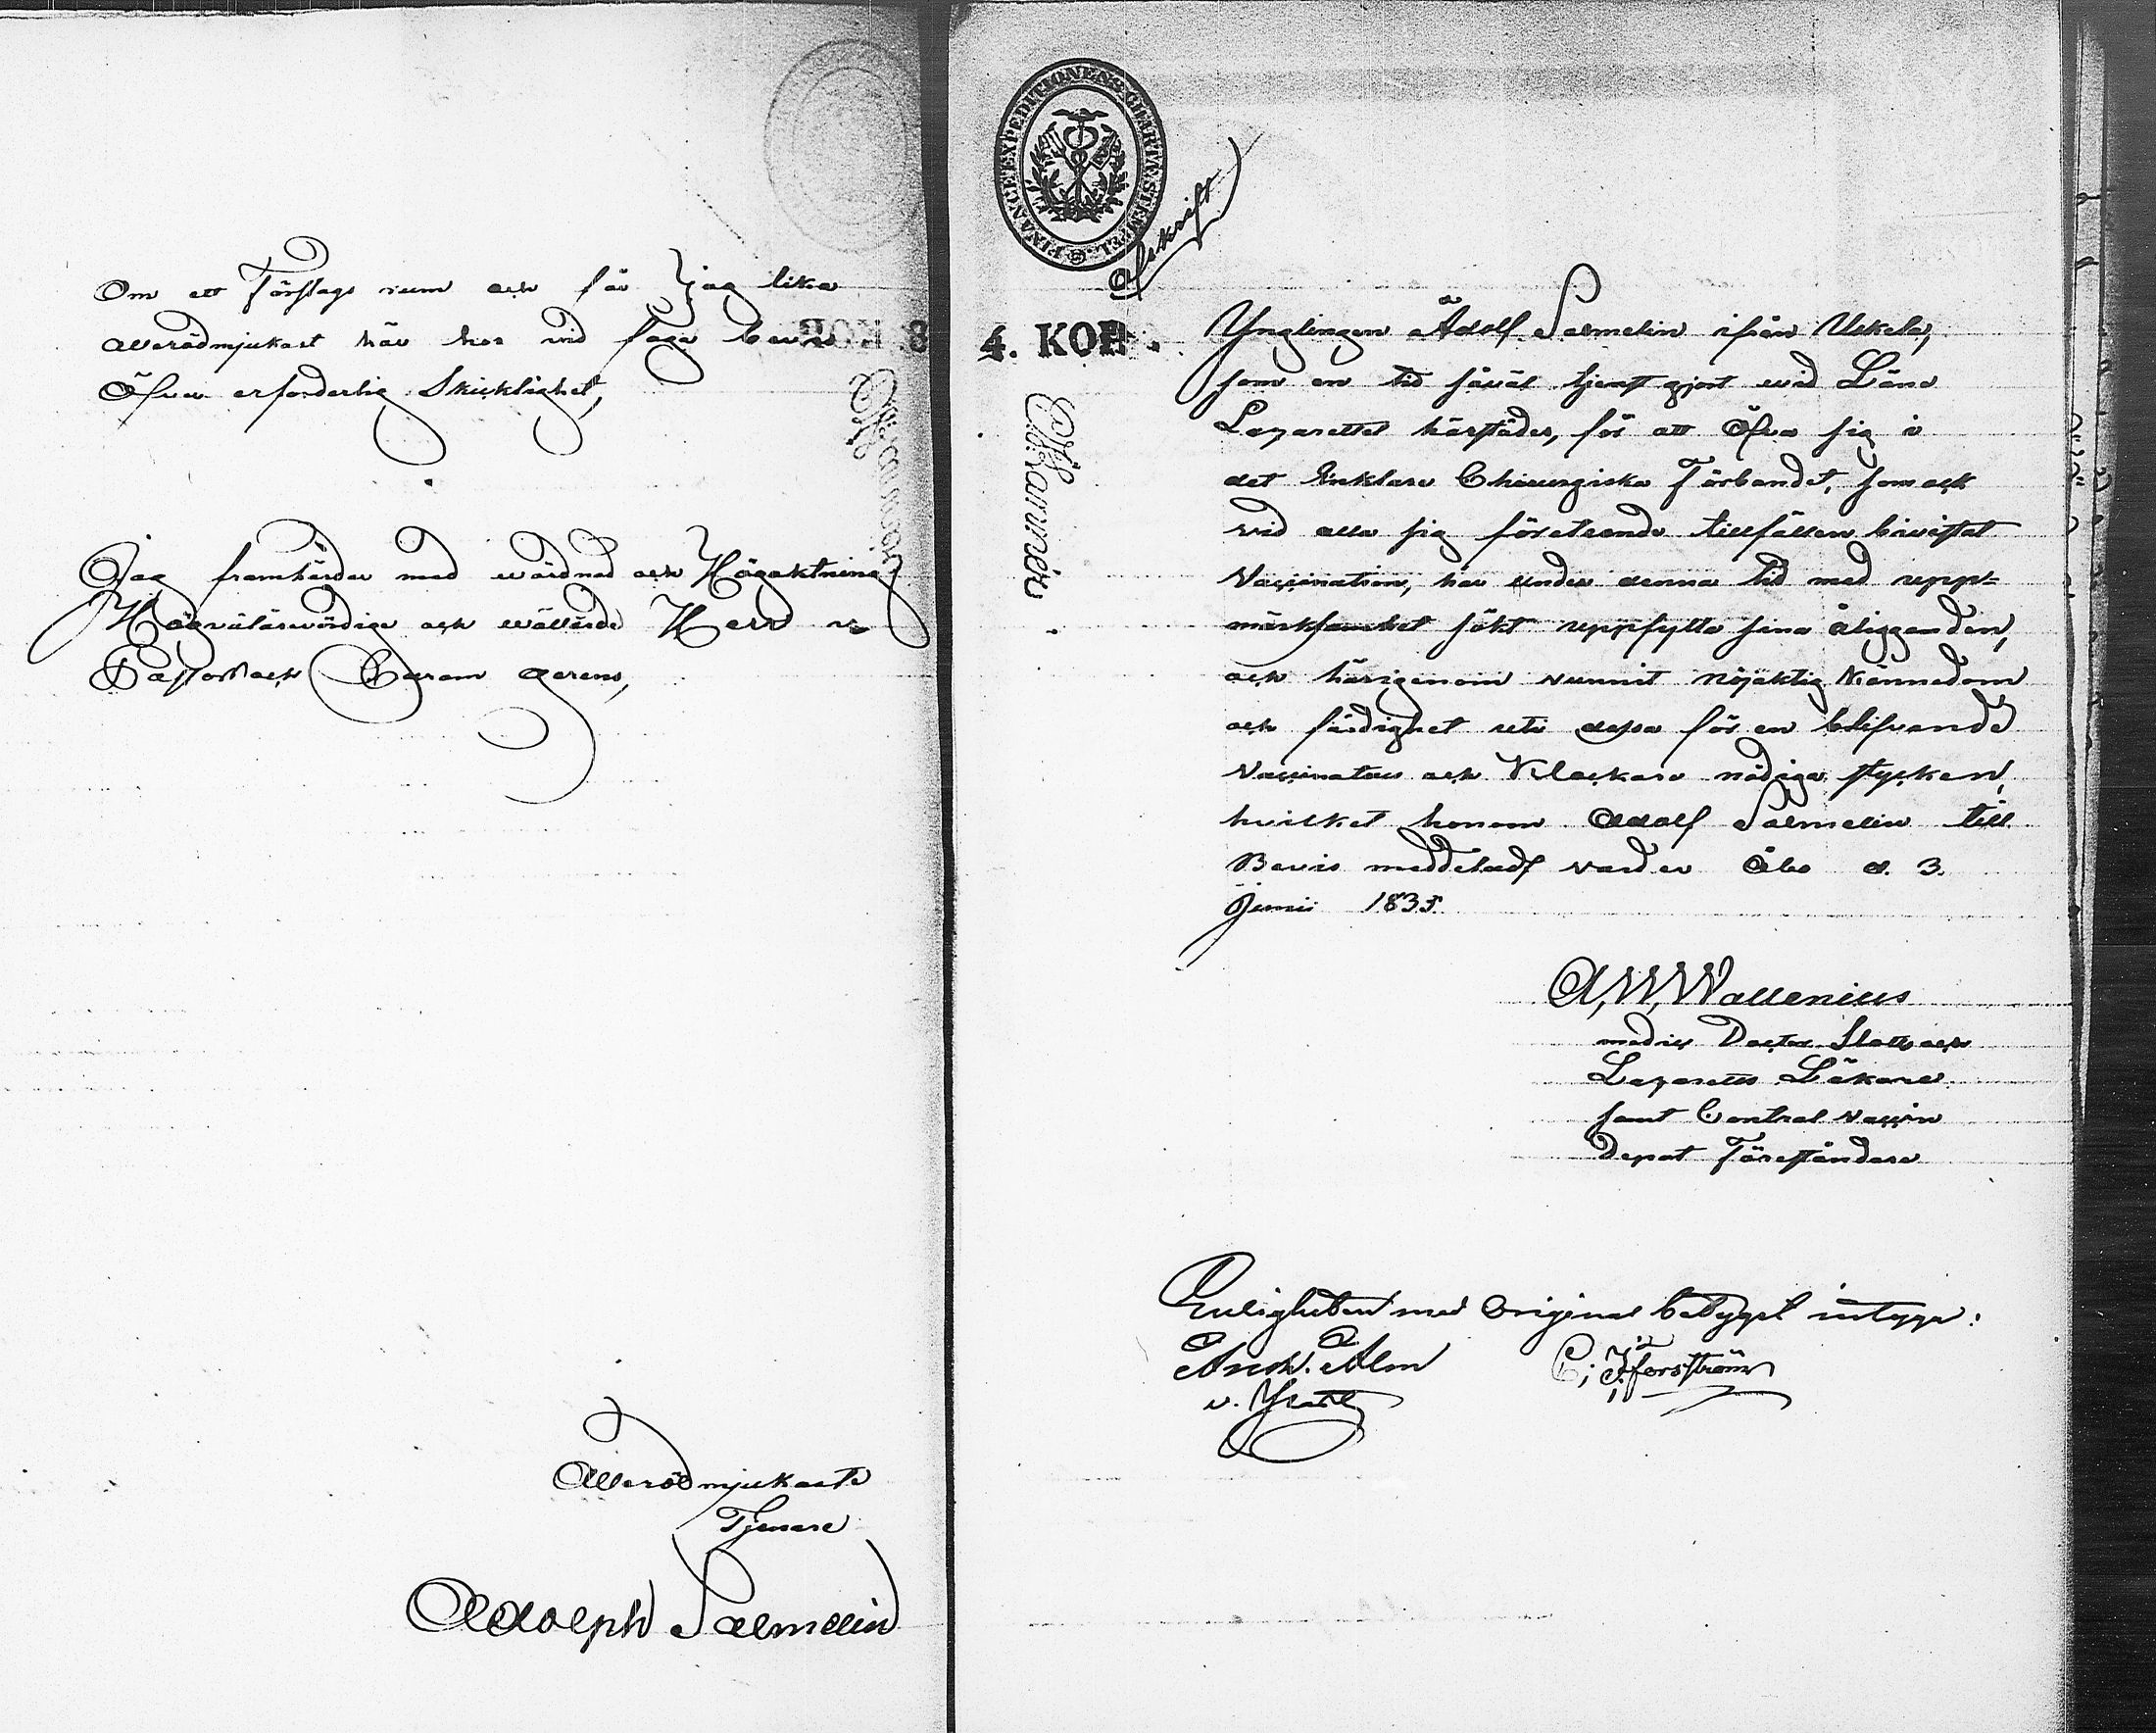 Om ett Förslags rum och får jag lika
alleródmjukast här hos vid foga bevis
Öfver erforderlig Skicklighet,
Jag framhärdar med wördnad och Högaktning
Högvälärevördige och wällärde Herr
Pastorn och Curam gerens,
Allerödmjukaste
Tjenare
Adolph Salmelin
FINANCEEXPEDITIONENS CHARTÆ STEMPEL
Afskrift
4. KOP.
Mannér
Ynglingen Adolf Salmelin ifrån Uskela,
som en tid såväl tjenstgjort wid Läns
Lazarettet härstädes, för att Öfva sig i
det Enklare Chirurgiska Förbandet, som ock
vid alla sig företeende tillfällen bivistat
Vaccination, har under denna tid med upp-
märksamhet sökt uppfylla sina åligganden,
och härigenom vunnit nöjaktig Kännedom
och färdighet uti dessa för en blifvande
Vaccinateur och Klockare nödiga stycken,
hvilket honom Adolf Salmelin till
Bevis meddeladt varder Åbo d. 3.
Junii 1835.
A. W. Wallenius
medic Doctor Slotts och
Lazaretts Läkare
samt Central Vaccin
Depot Föreståndare
Enligheten med Original betyget intyga:
Anders Alm C. J. Forsström